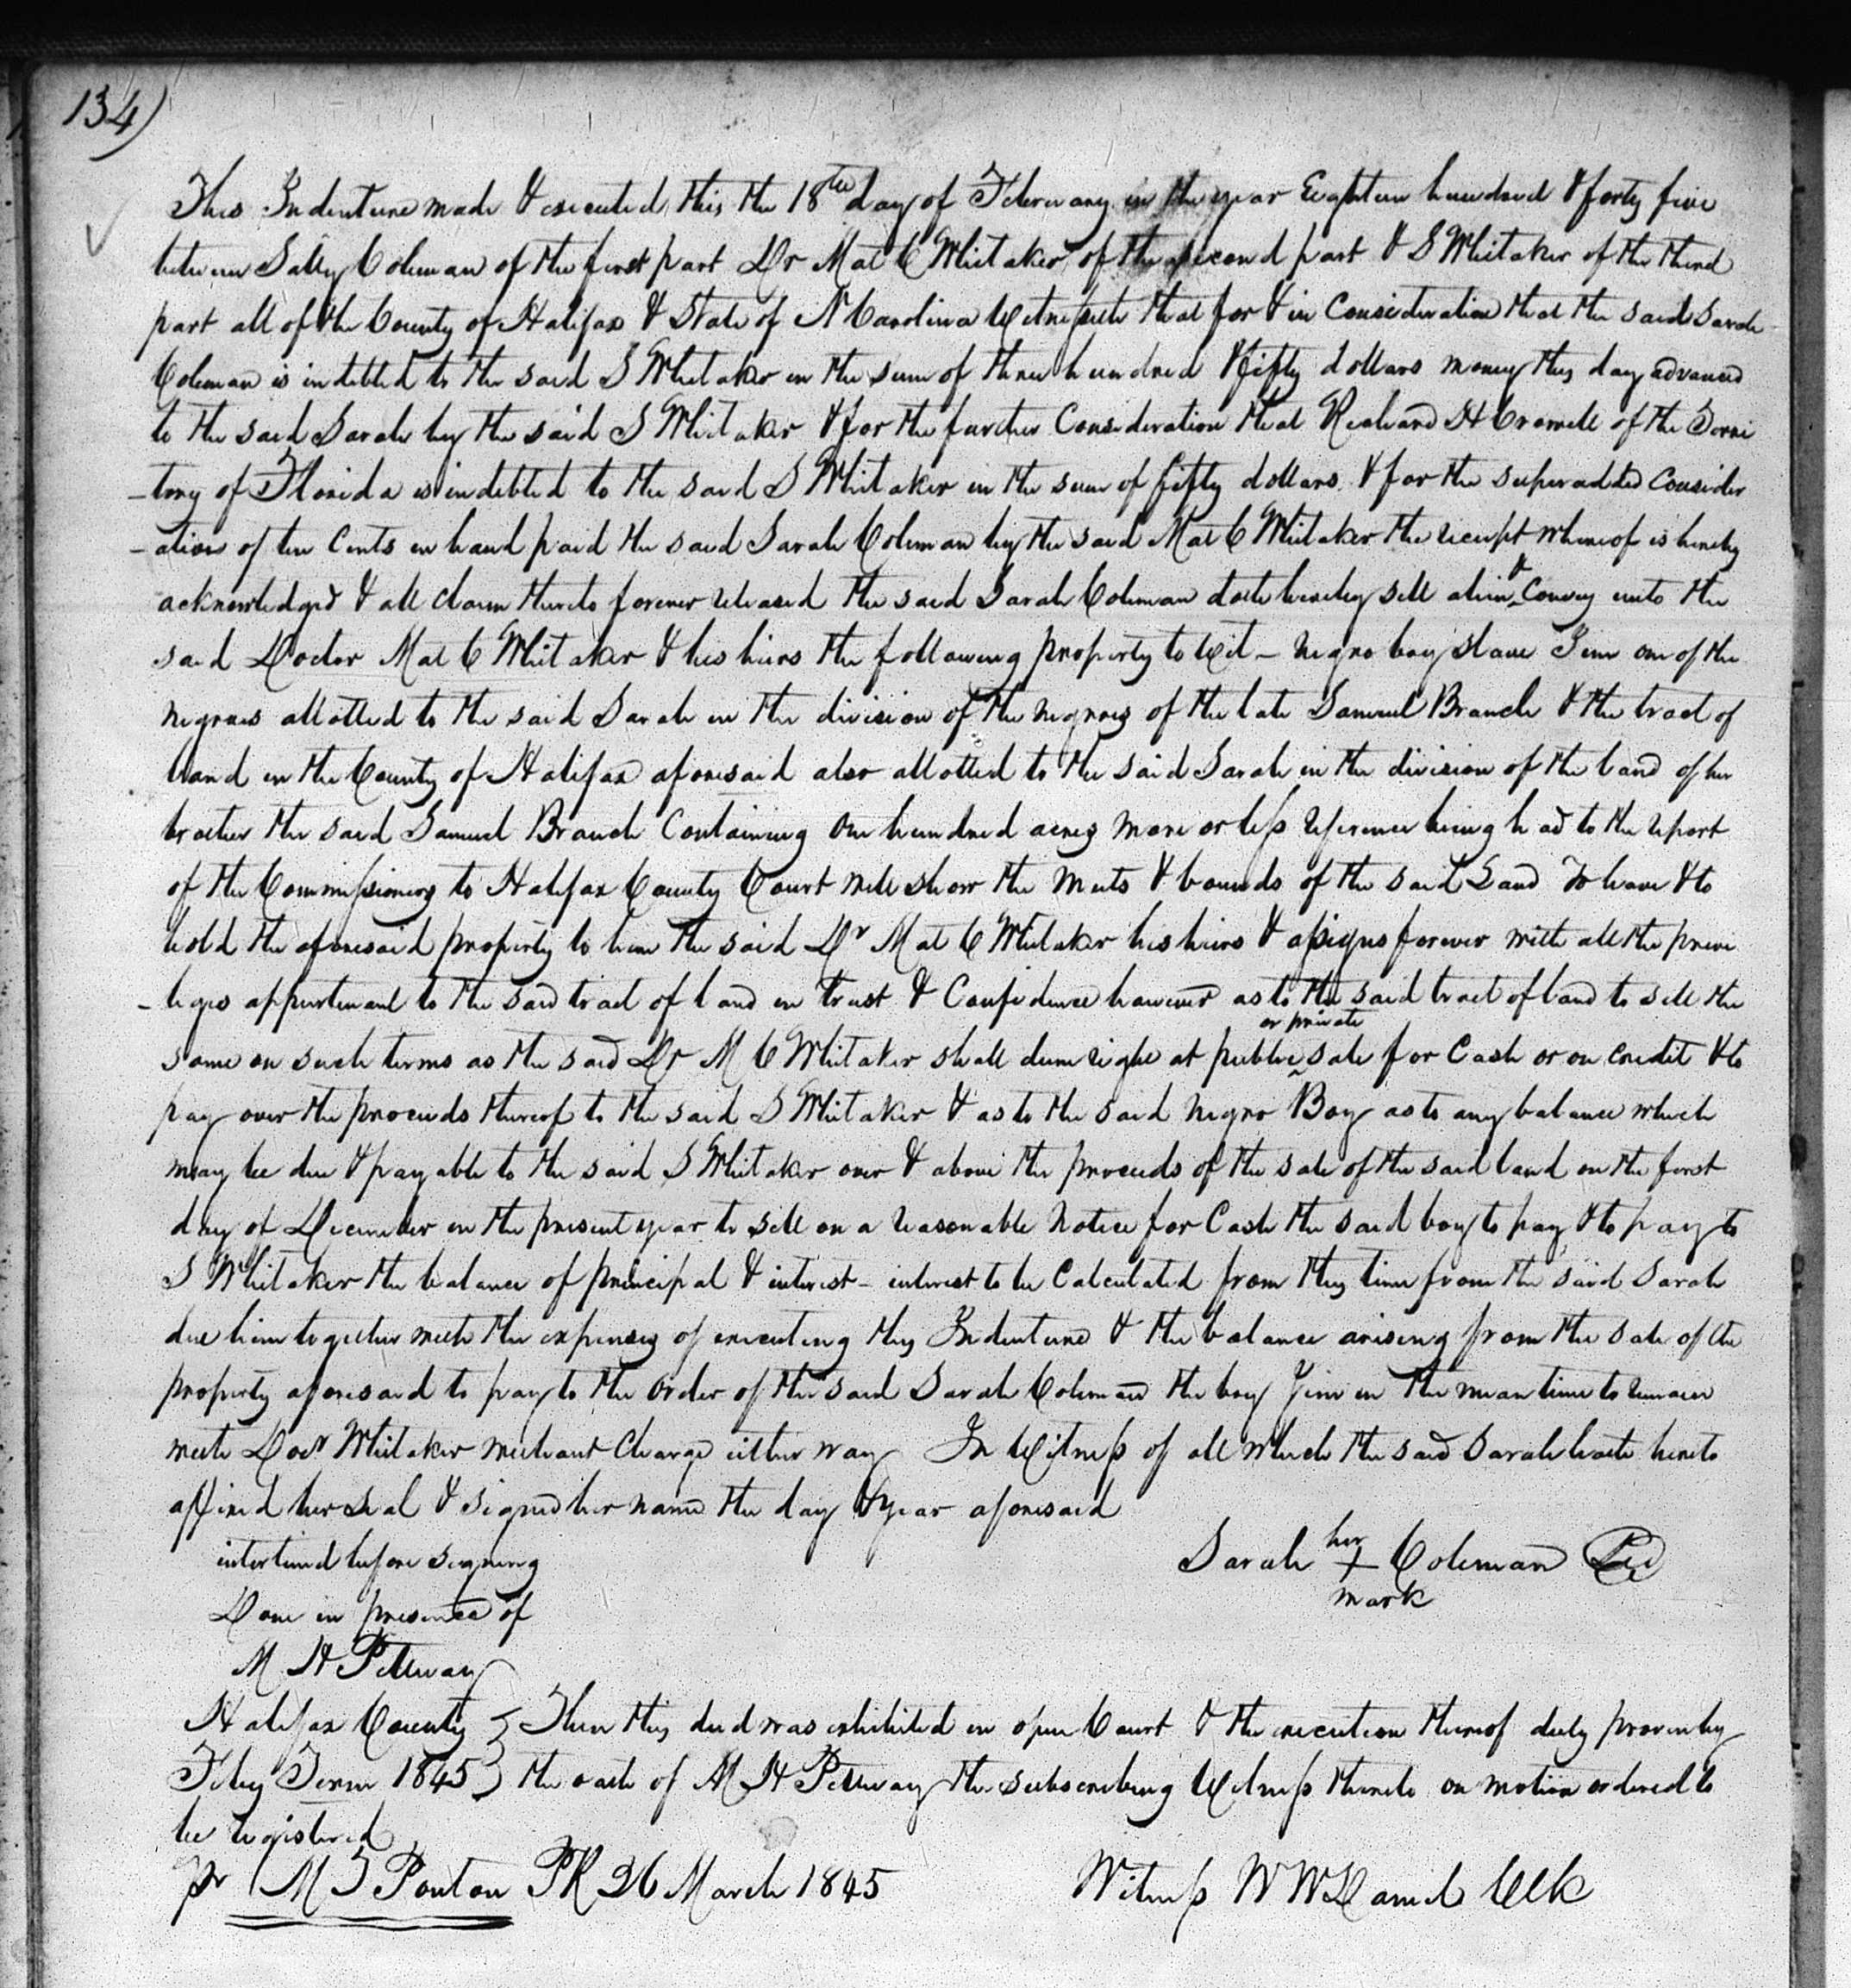 134)
This Indenture made & executed this the 18th day of February in the year Eighteen hundred & forty five
between Sally Coleman of the first part Dr Mat C Whitaker of the second part & S Whitaker of the third
part all of the County of Halifax & State of N Carolina Witnesseth that for & in Consideration that the said Sarah
Coleman is indebted to the said S Whitaker in the sum of three hundred & fifty dollars money this day advanced
to the said Sarah by the said S Whitaker & for the further Consideration that H Cromwell of the Terri
-tory of Florida is indebted to the said S Whitaker in the sum of fifty dollars & for the superadded Consider
-ation of ten Cents in hand paid the said Sarah Coleman by the said Mat C Whitaker the receipt whereof is hereby
acknowledged & all claim thereto forever released the said Sarah Coleman doth hereby sell alien & Convey unto the
said Doctor Mat C Whitaker & his heirs the following property to wit - negro boy slave Jim one of the
negroes allotted to the said Sarah in the division of the negroes of the late Samuel Branch & the tract of
land in the County of Halifax aforesaid also allotted to the said Sarah in the division of the land of her
brother the said Samuel Branch Containing one hundred acres more or less reference being had to the report
of the Commissioners to Halifax County Court will show the meets & bounds of the said Land To have & to
hold the aforesaid property to him the said Dr Mat C Whitaker his heirs & assigns forever with all the privi
-leges appurtenant to the said tract of land in trust & Confidence however as to the said tract of land to sell the
same on such terms as the said Dr M C Whitaker shall deem right at public or private sale for Cash or on credit & to
pay over the proceeds thereof to the said S Whitaker & as to the said negro Boy as to any balance which
may be due & payable to the said S Whitaker over & above the proceeds of the sale of the said land on the first
day of December in the present year to sell on a reasonable notice for Cash the said boy to pay & to pay to
S Whitaker the balance of principal & interest - interest to be Calculated from this time from the said Sarah
due him together with the expenses of executing this Indenture & the balance arising from the sale of the
property aforesaid to pay to the order of the said Sarah Coleman the boy Jim in the mean time to remain
with Doctr Whitaker without Charge either way In Witness of all which the said Sarah hath hereto
affixed her seal & signed her name the day & year aforesaid
interlined before signing
Sarah her + mark Coleman
Done in presence of
M H Pettway
Halifax County } Then this deed was exhibited in open Court & the execution thereof duly proven by
Feby Term 1845 } the oath of M H Pettway the subscribing Witness thereto on motion ordered to
be registered
pr M T Ponton PR 26 March 1845
Witness W W Daniel Clk